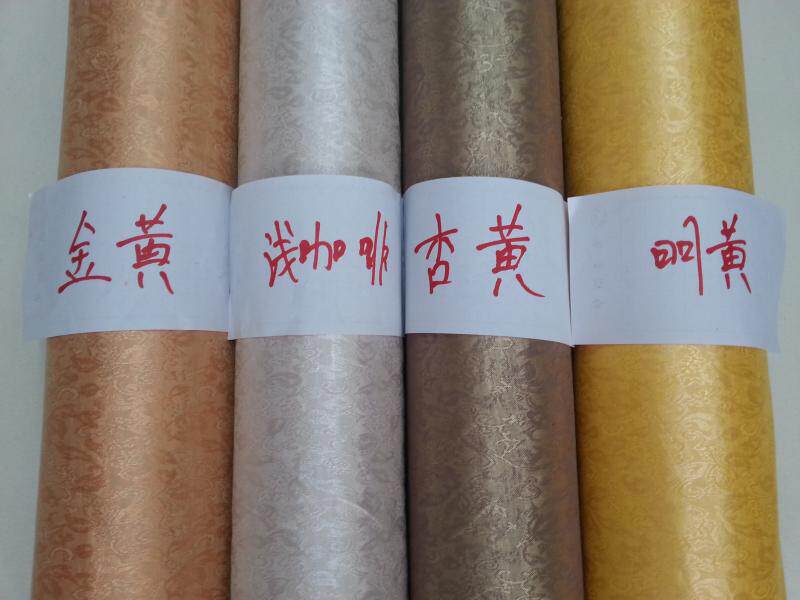 金黄
浅咖啡
杏黄
明黄